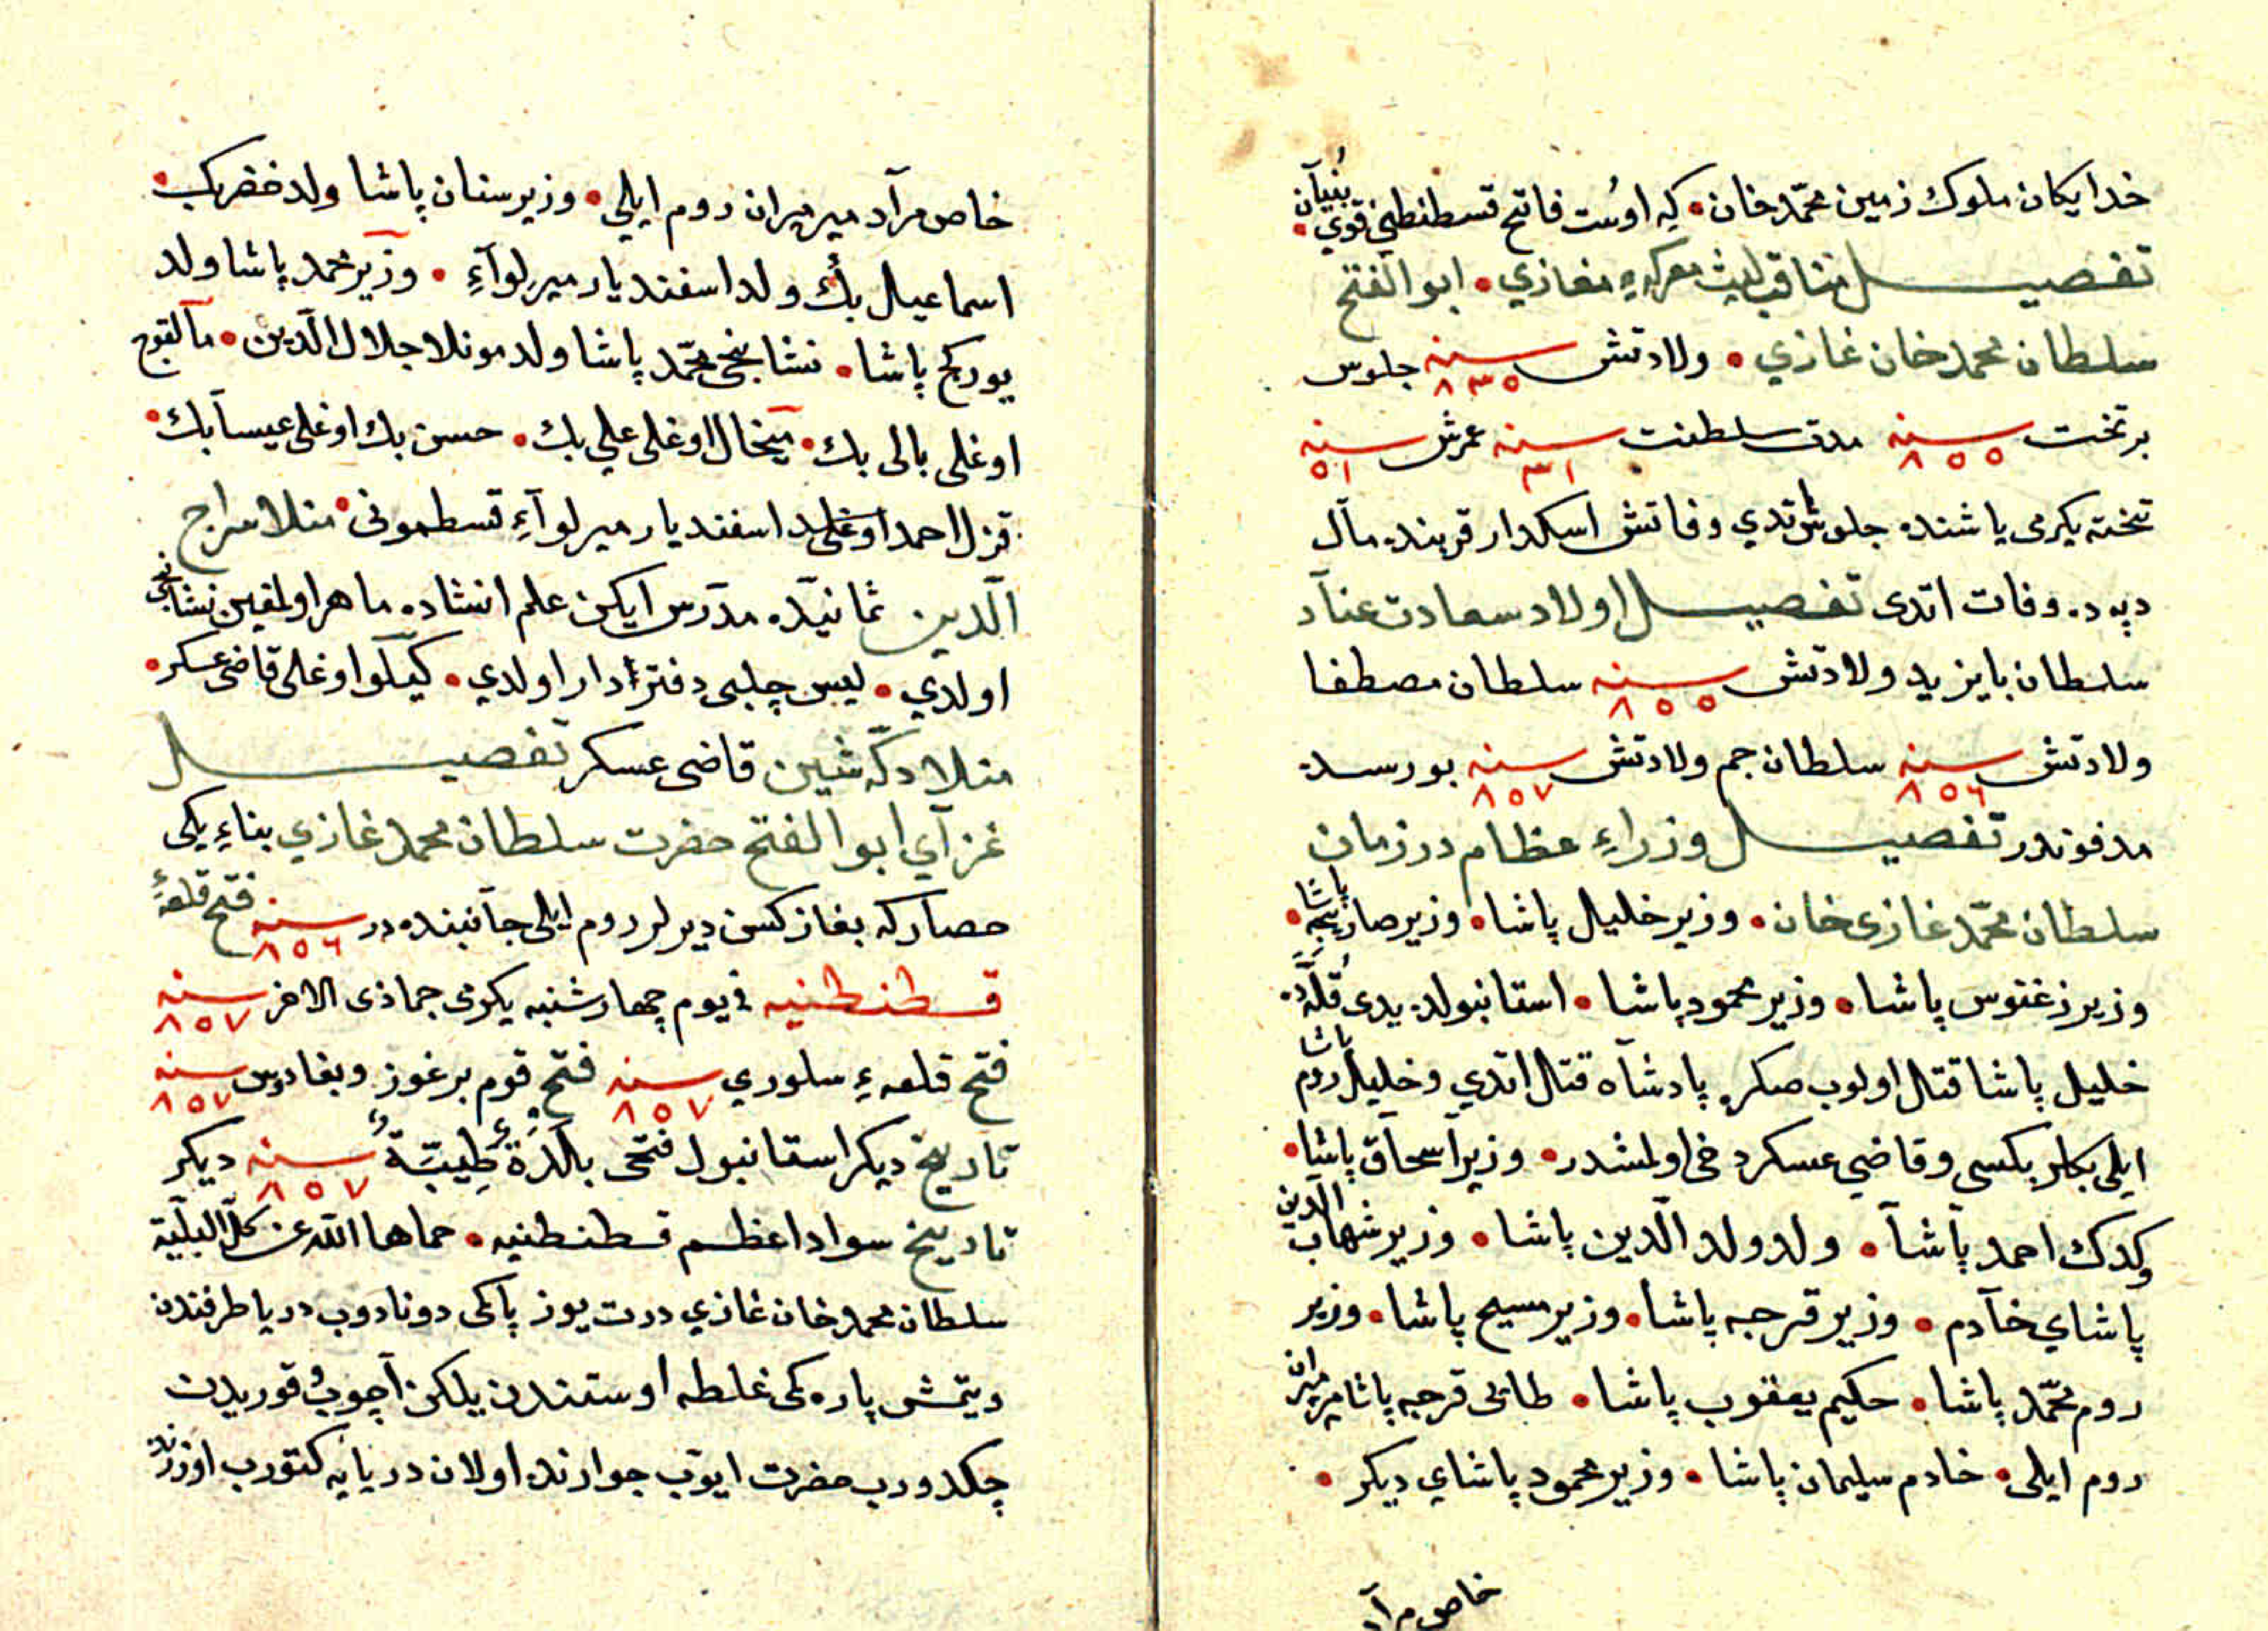 خدایکان ملوك زمین محمّد خان • که اوست فاتح قسطنطنی قوی بنیان •
تفصیل مناقب لیث معرکهٔ مغازي • ابو الفتح
سلطان محمد خان غازي • ولادتش سنه ٨٣٥ جلوس
بر تخت سنه ٨٥٥ مدت سلطنت سنه ٣١ عمرش سنه ٥١
تخته یکرمی یاشنده جلوس اتدي وفاتش اسکدار قربنده مال
دپه ده وفات اتدی تفصیل اولاد سعادت عناد
سلطان بایزید ولادتش سنه ٨٥٥ سلطان مصطفا
ولادتش سنه ٨٥٦ سلطان جم ولادتش سنه ٨٥٧ بورسه ده
مدفوندر تفصیل وزراءِ عظام در زمان
سلطان محمّد غازی خان • وزیر خلیل پاشا • وزیر صاریجه پاشا •
وزیر زغنوس پاشا • وزیر محمود پاشا • استانبولده یدی قلّه ده •
خلیل پاشا قتل اولوب صکره پادشاه قتل اتدي وخلیل پاشا روم
ایلی بکلربکسی وقاضي عسکر دخی اولمشدر • وزیر اسحاق پاشا •
وکدك احمد پاشا • ولد ولد الّدین پاشا • وزیر شهاب الّدین
پاشاي خادم • وزیر قرجه پاشا • وزیر مسیح پاشا • وزیر
روم محمّد پاشا • حکیم یعقوب پاشا • طایی قرجه پاشا میرمیران
روم ایلی • خادم سلیمان پاشا • وزیر محمود پاشاي دیکر •
خاص مراد
خاص مراد میر میران روم ایلي • وزیر سنان پاشا ولد خضر بك •
اسماعیل بك ولد اسفندیار میر لواءِ • وزیر محمد پاشا ولد
یورکج پاشا • نشانجی محمّد پاشا ولد مونلا جلال الّدین • مالقوج
اوغلی بالی بك • میخال اوغلی علي بك • حسن بك اوغلی عیسا بك •
قزل احمد اوغلی ولد اسفندیار میر لواءِ قسطمونی • منلا سراج
الّدین ثمانیه ده مدرس ایکن علم انشاده ماهر اولمغین نشانجی
اولدي • لیس چلبی دفتردار اولدي • کیکلو اوغلی قاضی عسکر •
منلا دکّه شین قاضی عسکر تفصیل
غزاي ابو الفتح حضرت سلطان محمد غازي بناءِ یکی
حصار که بغاز کسن دیرلر روم ایلی جانبنده در سنه ٨٥٦ فتح قلعهٔ
قسطنطنیه في یوم چهار شنبه یکرمی جماذی الاخر سنه ٨٥٧
فتح قلعهءِ سلوري سنه ٨٥٧ فتح قوم برغوز وبغادوس سنه ٨٥٧
تاریخ دیکر استانبول فتحی بَلْدَةٌ طَيِّبَةٌ سنه ٨٥٧ دیکر
تاریخ سواد اعظم قسطنطنیه • حماها اللّه عن کلّ البلّیة
سلطان محمد خان غازي درت یوز پاکی دونادوب دریا طرفندن
ویتمش پاره کمی غلطه اوستندن یلکن آچوب قوریدن
چکدورب حضرت ایوّب جوارنده اولان دریایه کتورب اوزرنده